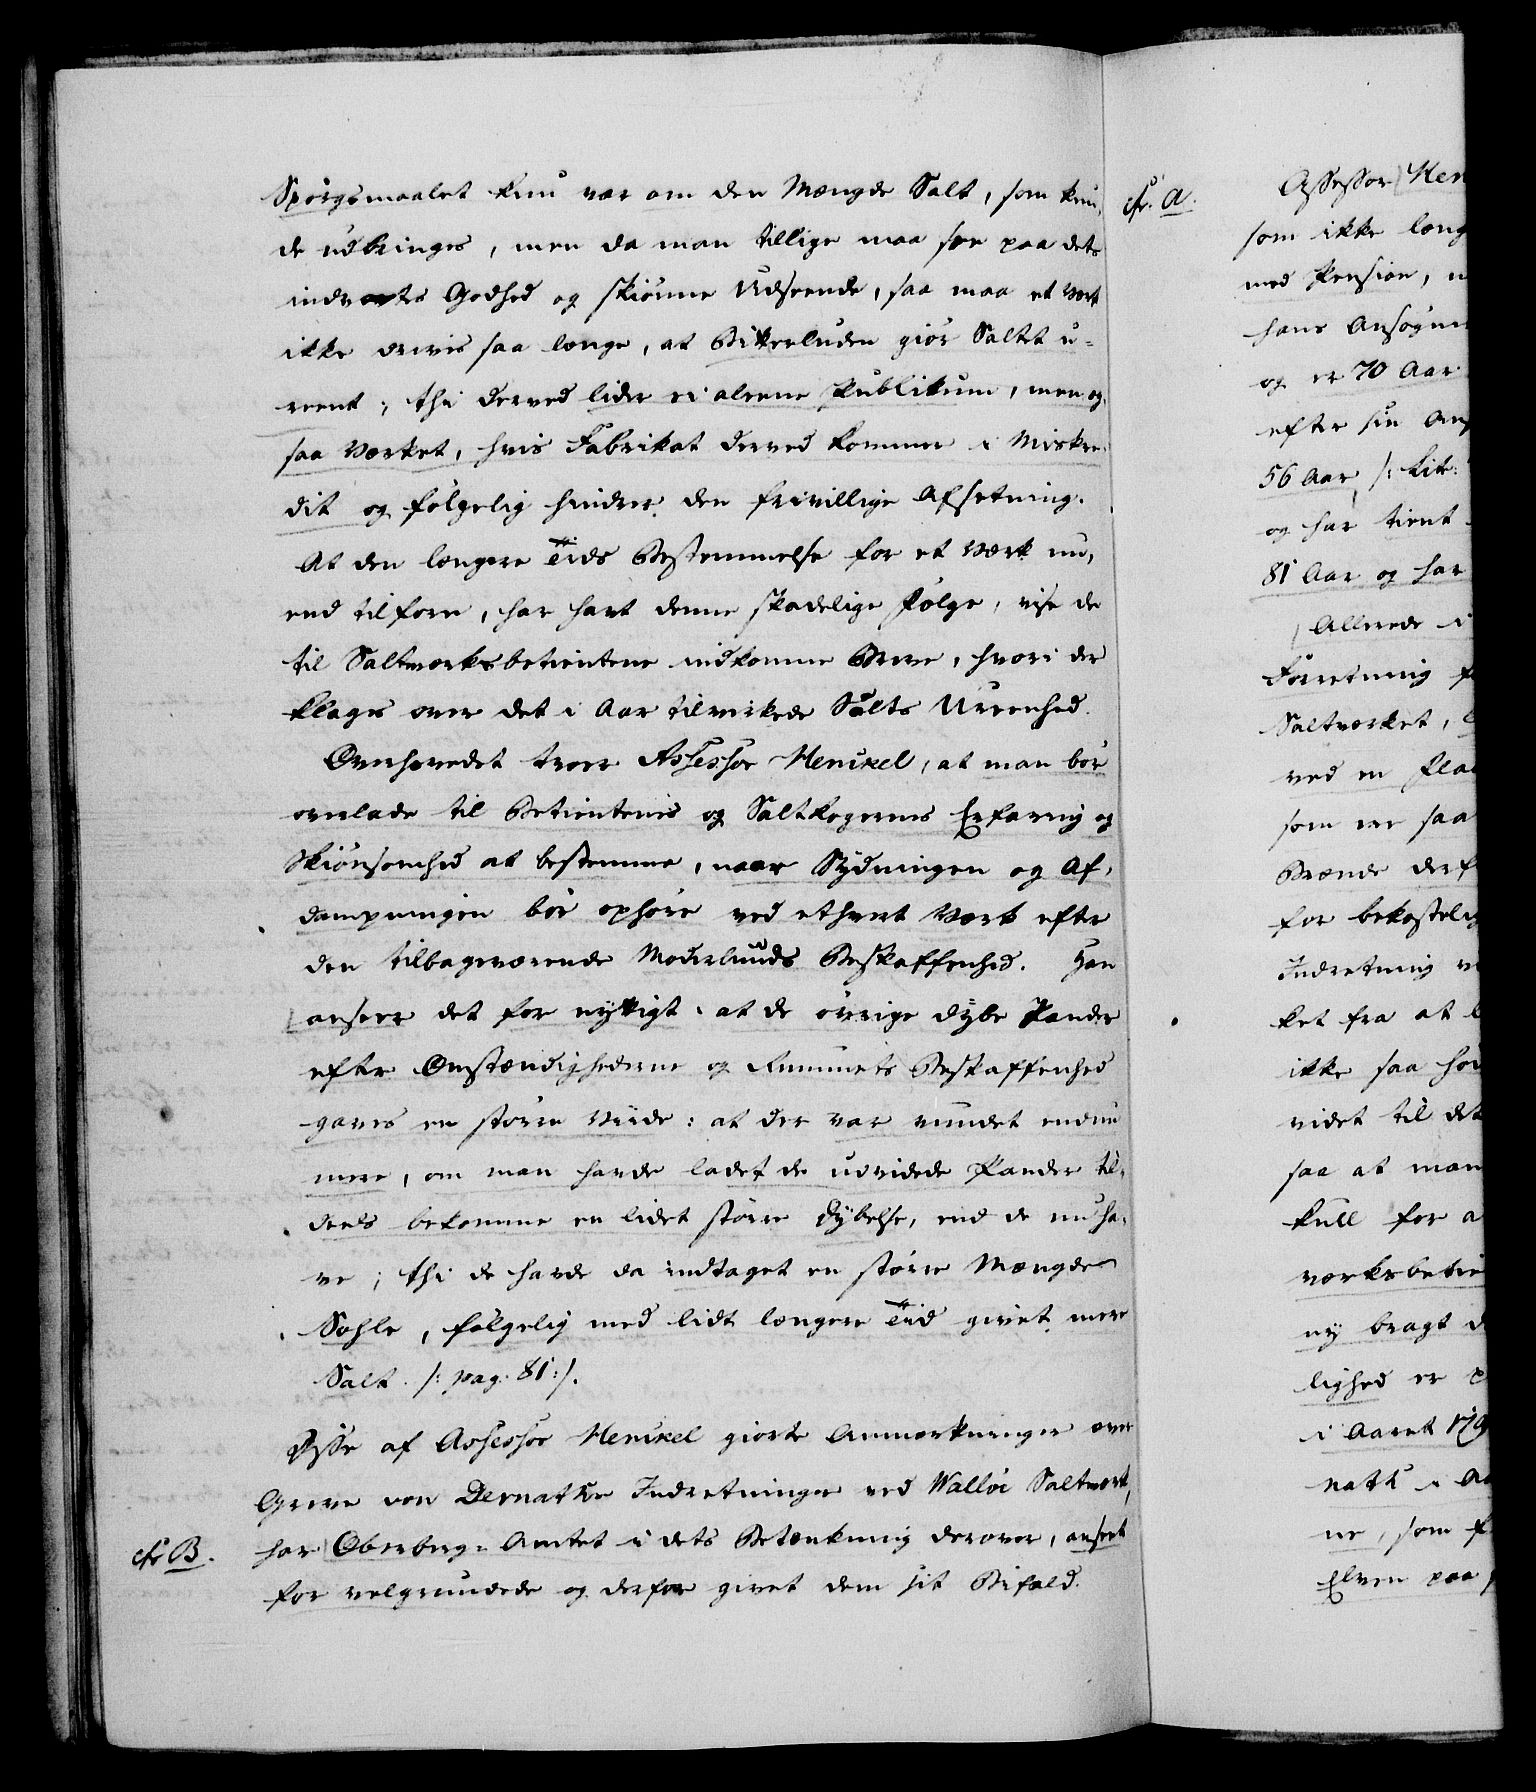 Spörgsmaalet kun var om den Mængde Salt, som kun-
de udbringes, men da man tillige maa see paa dets
indvortes Godhed og skiönne Udseende, saa maa et Værk
ikke drives saa længe, at Bitterluden giör Saltet u-
reent; thi derved lider ei aleene Publikum, men og-
saa Værket, hvis Fabrikat derved kommer i Miskre-
dit og fölgelig hindrer den frivillige Afsetning.
At den længere Tids Bestemmelse for et Værk nu,
end tilforn, har havt denne skadelige Fölge, vise de
til Saltværksbetientene indkomne Breve, hvori der
klages over det i Aar tilvirkede Salts Ureenhed.
Overhovedet troer Assessor Henckel, at man bör
overlade til Betientenes og Saltkogernes Erfaring og
Skiönsomhed at bestemme, naar Sydningen og Af-
dampningen bör ophöre ved ethvert Værk efter
den tilbageværende Moderluuds Beskaffenhed. Han
anseer det for nyttigt at de övrige dybe Pander
efter Omstændighederne og Rummets Beskaffenhed
gaves en större Viide: at der var vundet endnu
mere, om man havde ladet de udvidede Pander til-
deels bekomme en lidet större Dybelse, end de nu ha-
ve; thi de havde da indtaget en större Mængde
Sohle, fölgelig med lidt længere Tiid givet mere
Salt. /: pag. 81 :/.
Disse af Assessor Henckel giorte Anmærkninger over
Greve von Dernaths Indretninger ved Walløe Saltværk,
cfr B. har Oberberg-Amtet i dets Betænkning derover, anseet
for velgrundede og derfor givet dem sit Bifald.
cfr. A.
Assessor Hen
som ikke læng
med Pension,
hans Ansögn
og er 70 Aar
efter sin Ans
56 Aar, /: Litr:
og har tient
81 Aar og har
Allerede i
Forretning
Saltværket,
ved en
som er saa
Brænde derf
for bekostelig
Indretning
ket fra at
ikke saa
videt til det
saa at man
full for a
værksbetie
ny bragt d
lighed er
i Aaret 179
nath i
ne, som
Elven paa